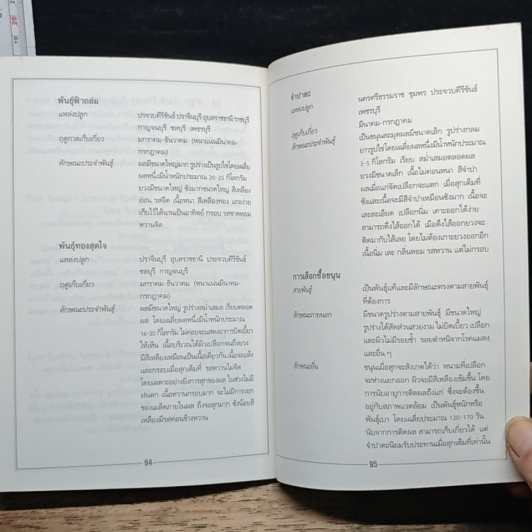 พันธุ์ฟ้าถล่ม
แหล่งปลูก ประจวบคีรีขันธ์ ปราจีนบุรี อุบลราชธานี ราชบุรี
กาญจนบุรี ชลบุรี เพชรบุรี
ฤดูกาลเก็บเกี่ยว มกราคม-ธันวาคม (หนาแน่นมีนาคม-
กรกฎาคม)
ลักษณะประจำพันธุ์ ผลมีขนาดใหญ่มาก รูปร่างเป็นรูปไข่โดยเฉลี่ย
ผลหนึ่งมีน้ำหนักประมาณ 20-25 กิโลกรัม
ยวงมีขนาดใหญ่ ซังมากขนาดใหญ่ สีเหลือง
อ่อน รสจืด เนื้อหนา สีเหลืองทอง แกะง่าย
เก็บไว้ได้นานเป็นอาทิตย์ กรอบ รสชาติหอม
หวานจัด
พันธุ์ทองสุดใจ
แหล่งปลูก ปราจีนบุรี อุบลราชธานี ประจวบคีรีขันธ์
ชลบุรี กาญจนบุรี
ฤดูเก็บเกี่ยว มกราคม-ธันวาคม (หนาแน่นมีนาคม-
กรกฎาคม)
ลักษณะประจำพันธุ์ ผลมีขนาดใหญ่ รูปร่างสม่ำเสมอ เรียบตลอด
ผล โดยเฉลี่ยผลหนึ่งมีน้ำหนักประมาณ
16-20 กิโลกรัม ไม่ค่อยจะแสดงอาการบิดเบี้ยว
ให้เห็น เนื้อบริเวณใต้ผิวเปลือกจนถึงยวง
มีสีเหลืองเหมือนเป็นเนื้อเดียวกัน เนื้อจะแห้ง
และกรอบเมื่อสุกเต็มที่ รสหวานไม่จัด
โดยเฉพาะอย่างยิ่งการสุกของผล ในช่วงไม่มี
ฝนตก เนื้อหวานกรอบมาก จะไม่มีการงอก
ของเมล็ดภายในผล ถึงจะสุกมาก ซังน้อยสี
เหลืองมีรสค่อนข้างหวาน
94
จำปาดะ
แหล่งปลูก นครศรีธรรมราช ชุมพร ประจวบคีรีขันธ์
เพชรบุรี
ฤดูเก็บเกี่ยว มีนาคม-กรกฎาคม
ลักษณะประจำพันธุ์ เป็นขนุนละมุดผลมีขนาดเล็ก รูปร่างกลม
ยาวรูปไข่โดยเฉลี่ยผลหนึ่งมีน้ำหนักประมาณ
3-5 กิโลกรัม เรียบ สม่ำเสมอตลอดผล
ยวงมีขนาดเล็ก เนื้อไม่ค่อนหนา สีจำปา
ผลเมื่อแก่จัดเปลือกจะแตก เมื่อสุกเต็มที่
ซังและเนื้อจะมีสีจำปาเหมือนซังมาก เนื้อจะ
และละเอียด เปลือกนิ่ม เคาะออกได้ง่าย
สามารถดึงไส้ออกได้ เมื่อดึงไส้ยวงจะ
ติดมากับไส้เลย โดยไม่ต้องเกาะยวงออกอีก
เนื้อนิ่ม เละ กลิ่นหอม รสหวาน แต่ไม่กรอบ
การเลือกซื้อขนุน
สายพันธุ์ เป็นพันธุ์แท้และมีลักษณะตรงตามสายพันธุ์
ที่ต้องการ
ลักษณะภายนอก มีขนาดรูปร่างตามสายพันธุ์ มีขนาดใหญ่
รูปร่างได้สัดส่วนสวยงาม ไม่บิดเบี้ยว เปลือก
และผิวไม่มีรอยช้ำ รอยตำหนิจากโรคแมลง
และอื่น ๆ
ลักษณะอื่น ขนุนเมื่อสุกจะสังเกตได้ว่า หนามที่เปลือก
จะห่างแยกออก ผิวจะมีสีเหลืองเข้มขึ้น โดย
การนับอายุการติดผลถึงแก่ ซึ่งจะต้องขึ้น
อยู่กับสภาพแวดล้อม เป็นพันธุ์หนักหรือ
พันธุ์เบา โดยเฉลี่ยประมาณ 120-170 วัน
นับจากการติดผล สามารถเก็บเกี่ยวได้ แต่
จำปาดะนิยมรับประทานเมื่อสุกเต็มที่เท่านั้น
95